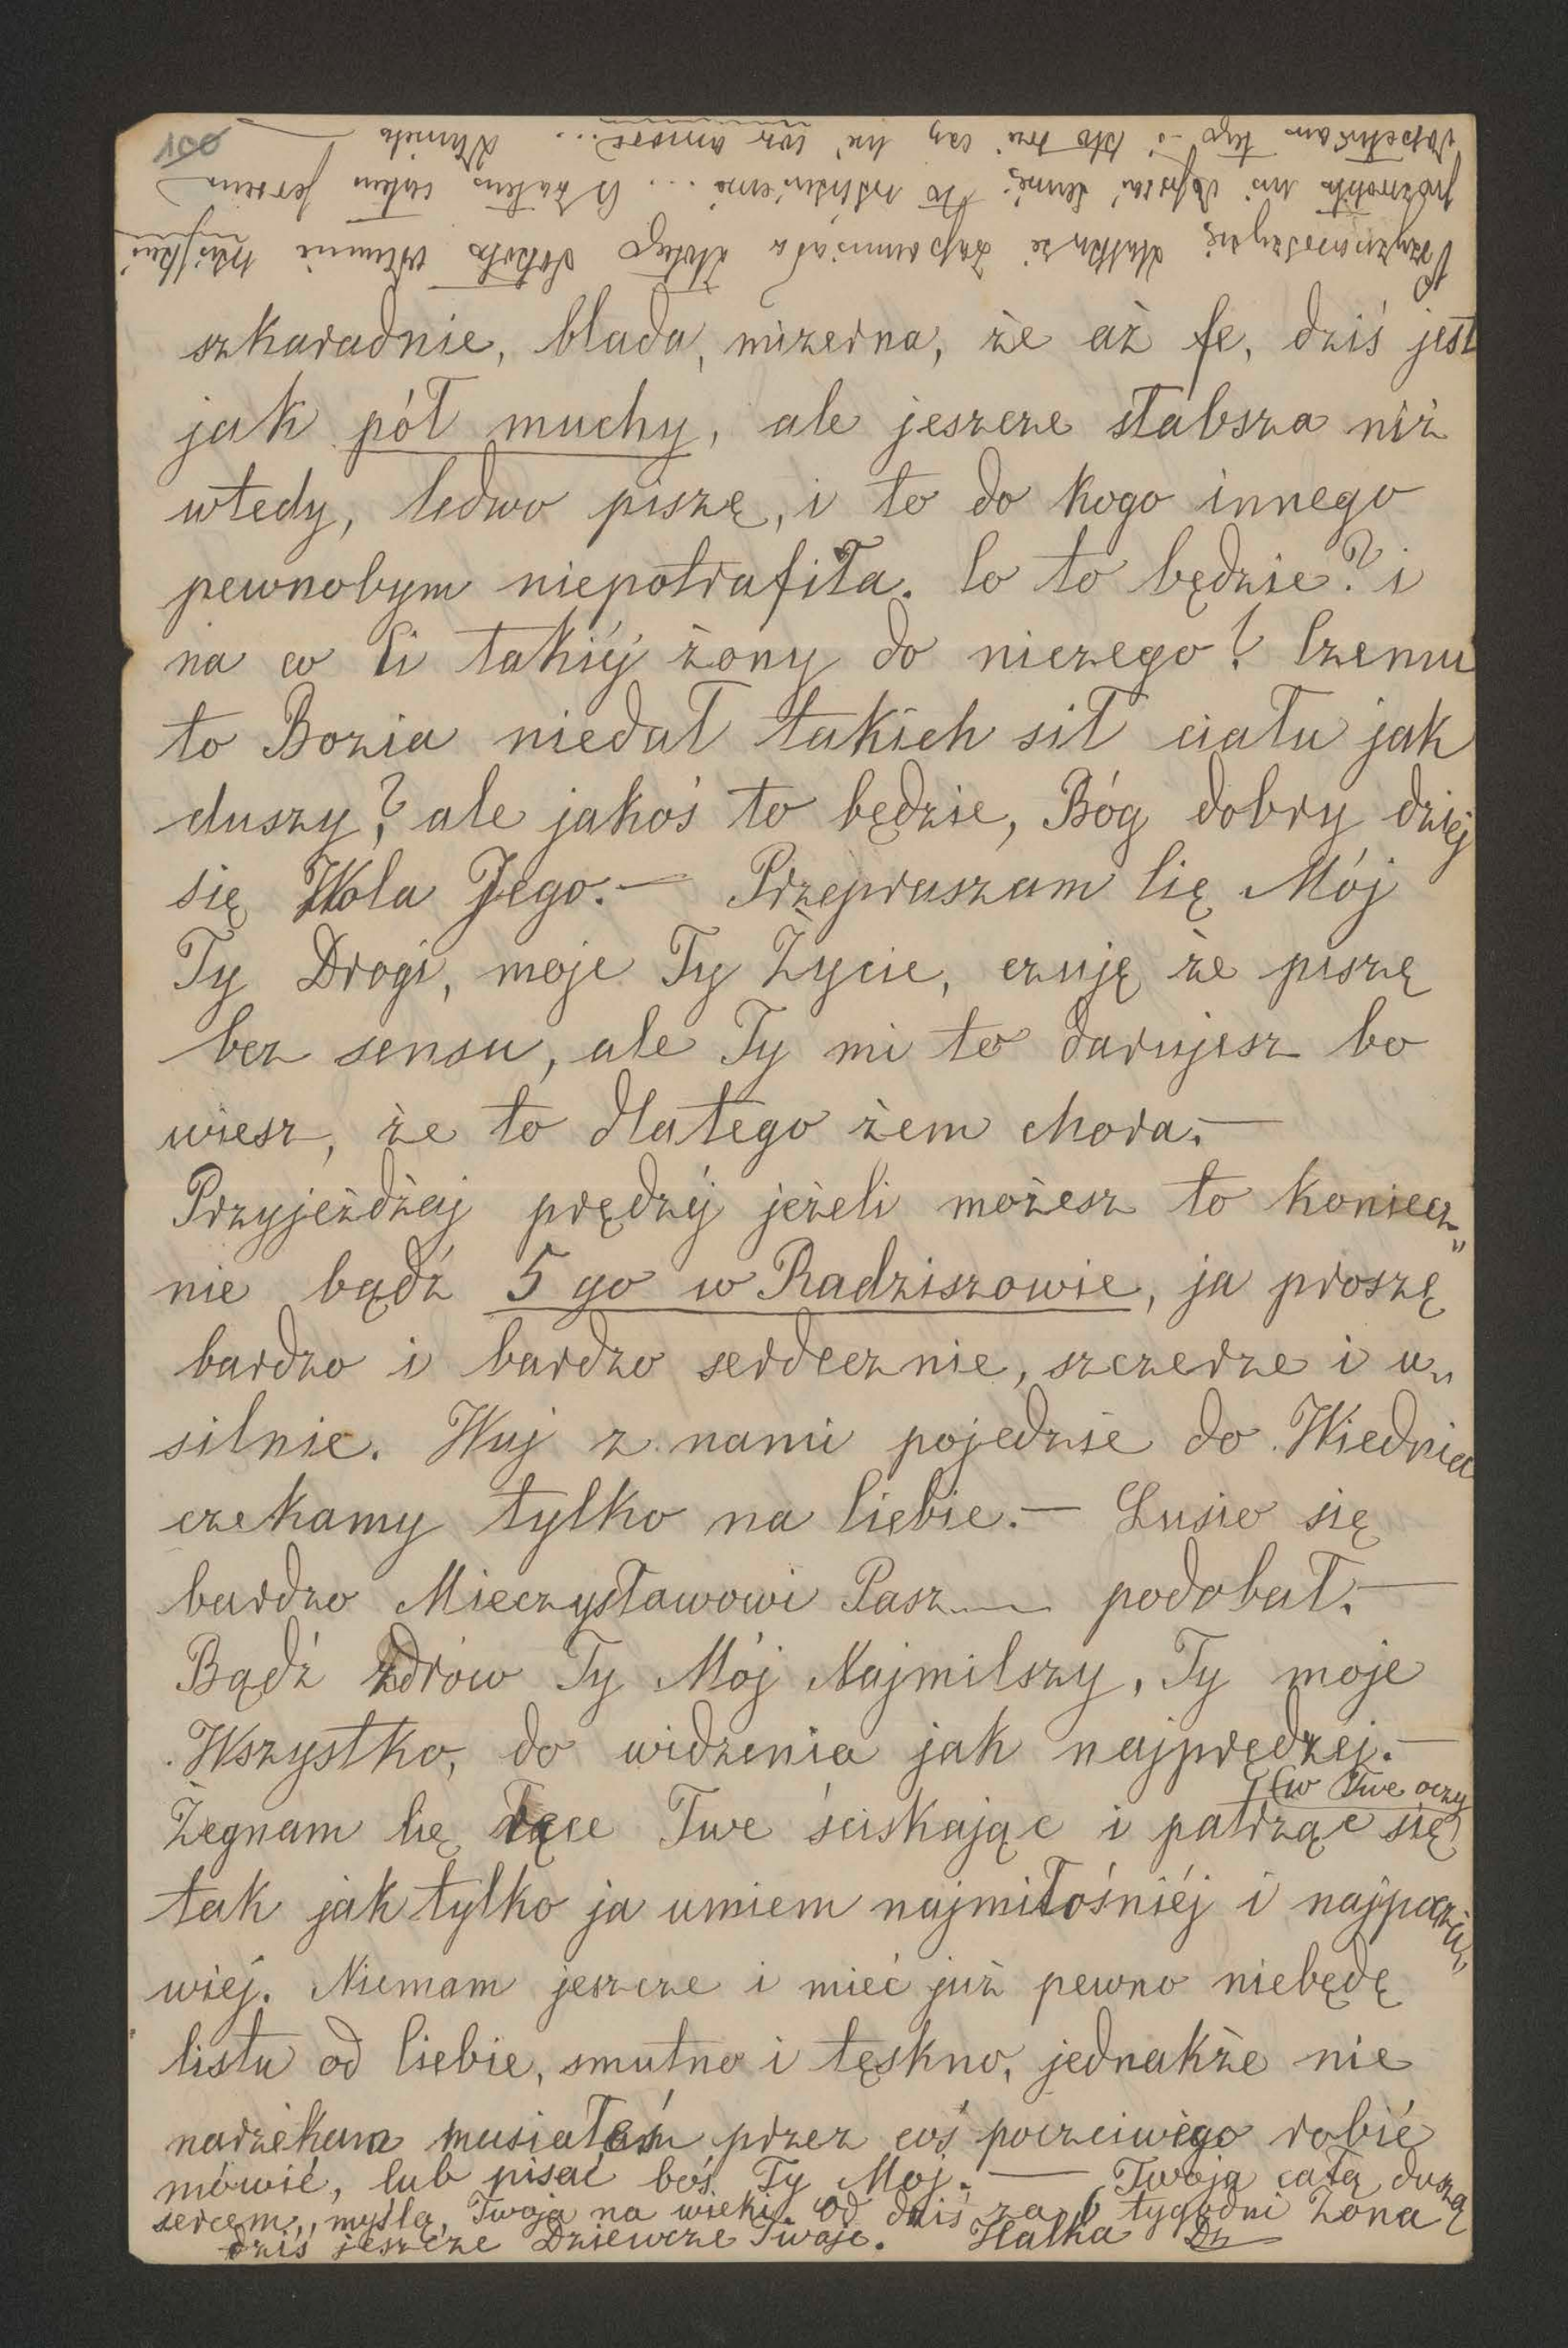 100
szkaradnie, blada, mizerna, że aż fe, dziś jest
jak pół muchy, ale jeszcze słabsza niż
wtedy, ledwo piszę, i to do kogo innego
pewnobym niepotrafiła. Co to będzie? i
na co Ci takiéj żony do niczego? Czemu
to Bozia niedał takich sił ciału jak
duszy? ale jakoś to będzie, Bóg dobry dziéj
się Wola Jego.— Przepraszam Cię Mój
Ty Drogi, moje Ty Życie, czuję że piszę
bez sensu, ale Ty mi to darujesz bo
wiesz, że to dlatego żem chora.—
Przyjeżdżaj prędzéj jeżeli możesz to koniecz„
nie bądź 5 go w Radziszowie, ja proszę
bardzo i bardzo serdecznie, szczerze i u„
silnie. Wuj z nami pojedzie do Wiednia
czekamy tylko na Ciebie.— Lusio się
bardzo Mieczysławowi Pasz.... podobał.—
Bądź zdrów Ty Mój Najmilszy, Ty moje
Wszystko, do widzenia jak najprędzej.—
(w Twe oczy
Żegnam Cię ręce Twe ściskając i patrząc się
tak jak tylko ja umiem najmiłośniéj i najpoczci„
wiej. Niemam jeszcze i mieć już pewno niebędę
listu od Ciebie, smutno i tęskno, jednakże nie
narzekam musiałeś przez coś poczciwego robić
mówić, lub pisać boś Ty Mój.— Twoja całą duszą
sercem, myślą, Twoja na wieki od dziś za 6 tygodni Żona
dziś jeszcze Dziewczę Twoje. Halka Dz